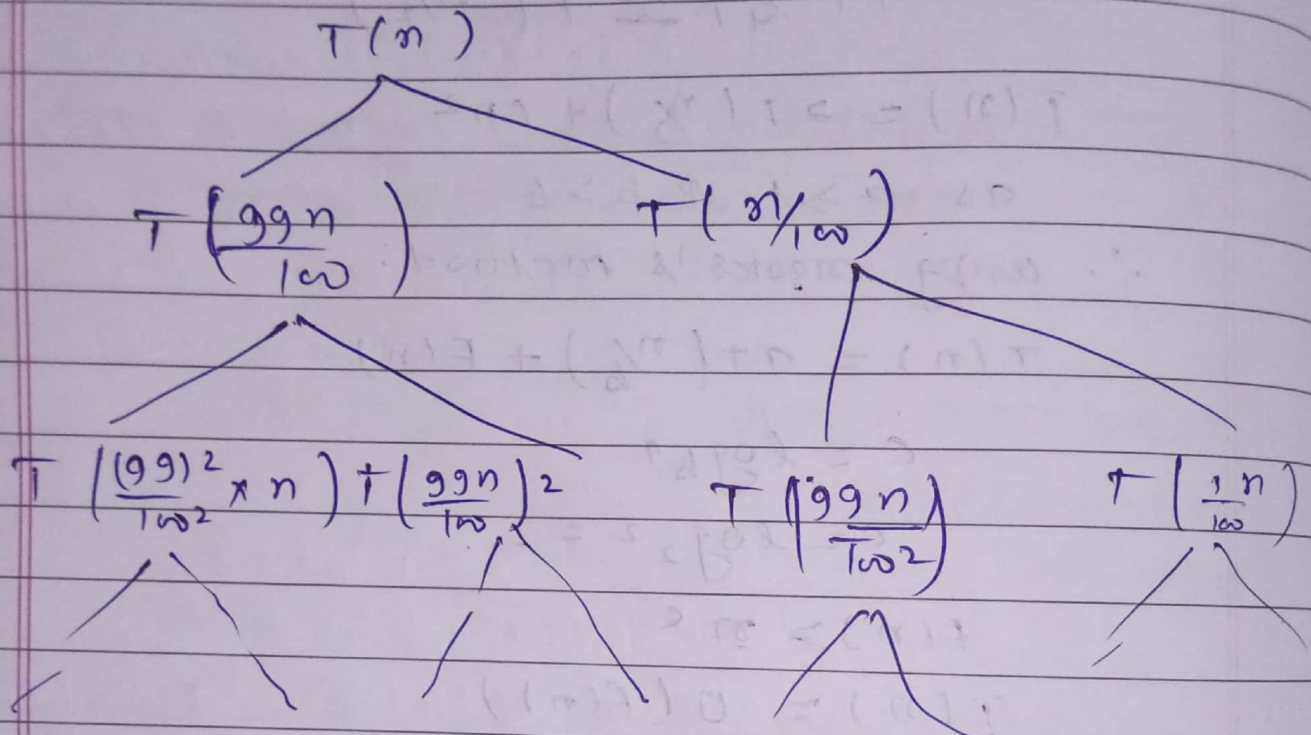 T(n)
T(99n/100) T(n/100)
T((99)²/100² × n) T(99n/100)² T(99n/100²) T(1/100 n)